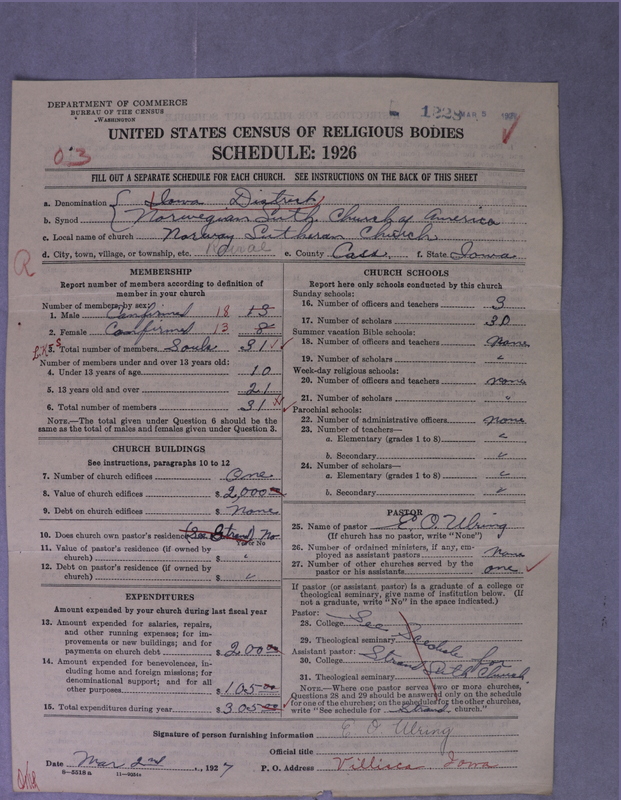 DEPARTMENT OF COMMERCE
BUREAU OF THE CENSUS
WASHINGTON
MAR 5
UNITED STATES CENSUS OF RELIGIOUS BODIES
SCHEDULE: 1926
03
FILL OUT A SEPARATE SCHEDULE FOR EACH CHURCH. SEE INSTRUCTIONS ON THE BACK OF THIS SHEET
a. Denomination Iowa District
b. Synod Norwegian Luth Church of America
c. Local name of church Norway Lutheran Church
d. City, town, village, or township, etc. Rural e. County Cass f. State Iowa
R
MEMBERSHIP
Report number of members according to definition of
member in your church
Number of members, by sex:
1. Male Confirmed 18 13
2. Female Confirmed 13 8
3. Total number of members Souls 31
Number of members under and over 13 years old:
4. Under 13 years of age 10
5. 13 years old and over 21
6. Total number of members 31
NOTE.—The total given under Question 6 should be the
same as the total of males and females given under Question 3.
CHURCH BUILDINGS
See instructions, paragraphs 10 to 12
7. Number of church edifices One
8. Value of church edifices $ 2,000
9. Debt on church edifices $ None
10. Does church own pastor's residence? (See Strand) No
Yes or No
11. Value of pastor's residence (if owned by
church) $ "
12. Debt on pastor's residence (if owned by
church) $ "
EXPENDITURES
Amount expended by your church during last fiscal year
13. Amount expended for salaries, repairs,
and other running expenses; for im-
provements or new buildings; and for
payments on church debt $ 200.00
14. Amount expended for benevolences, in-
cluding home and foreign missions; for
denominational support; and for all
other purposes $ 105.00
15. Total expenditures during year $ 305.00
CHURCH SCHOOLS
Report here only schools conducted by this church
Sunday schools:
16. Number of officers and teachers 3
17. Number of scholars 30
Summer vacation Bible schools:
18. Number of officers and teachers None
19. Number of scholars "
Week-day religious schools:
20. Number of officers and teachers none
21. Number of scholars "
Parochial schools:
22. Number of administrative officers none
23. Number of teachers—
a. Elementary (grades 1 to 8) "
b. Secondary "
24. Number of scholars—
a. Elementary (grades 1 to 8) "
b. Secondary "
PASTOR
25. Name of pastor E. O. Ulring
(If church has no pastor, write "None")
26. Number of ordained ministers, if any, em-
ployed as assistant pastors None
27. Number of other churches served by the
pastor or his assistants one
If pastor (or assistant pastor) is a graduate of a college or
theological seminary, give name of institution below. (If
not a graduate, write "No" in the space indicated.)
Pastor:
28. College See
29. Theological seminary Scedule for
Assistant pastor:
30. College Strand Luth Church
31. Theological seminary
NOTE.—Where one pastor serves two or more churches,
Questions 28 and 29 should be answered only on the schedule
for one of the churches; on the schedules for the other churches,
write "See schedule for Strand church."
Signature of person furnishing information E O Ulring
Official title
Date Mar 2nd, 1927 P. O. Address Villisca Iowa
8-5518a